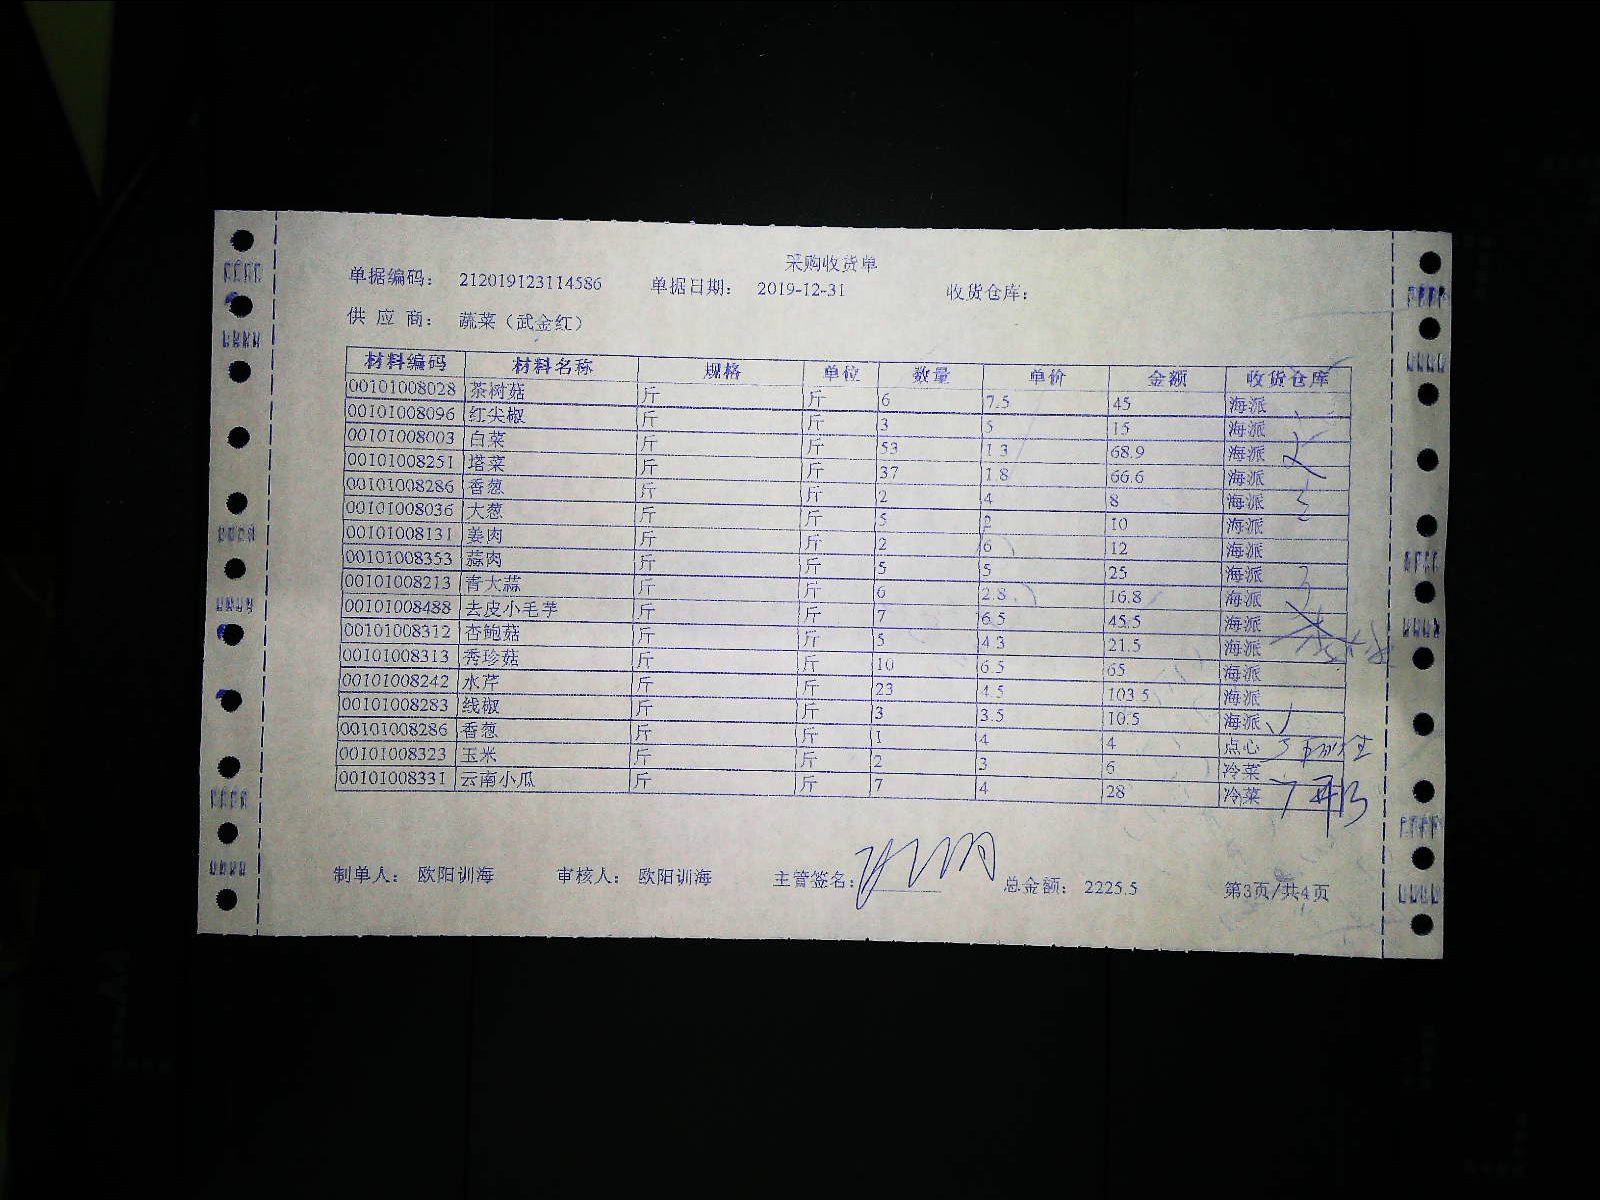 采购收货单
单据编码： 212019123114586 单据日期： 2019-12-31 收货仓库：
供 应 商： 蔬菜（武金红）
材料编码 材料名称 规格 单位 数量 单价 金额 收货仓库
00101008028 茶树菇 斤 斤 6 7.5 45 海派
00101008096 红尖椒 斤 斤 3 5 15 海派
00101008003 白菜 斤 斤 53 1.3 68.9 海派
00101008251 塔菜 斤 斤 37 1.8 66.6 海派
00101008286 香葱 斤 斤 2 4 8 海派
00101008036 大葱 斤 斤 5 2 10 海派
00101008131 姜肉 斤 斤 2 6 12 海派
00101008353 蒜肉 斤 斤 5 5 25 海派
00101008213 青大蒜 斤 斤 6 2.8 16.8 海派
00101008488 去皮小毛芋 斤 斤 7 6.5 45.5 海派
00101008312 杏鲍菇 斤 斤 5 4.3 21.5 海派
00101008313 秀珍菇 斤 斤 10 6.5 65 海派
00101008242 水芹 斤 斤 23 4.5 103.5 海派
00101008283 线椒 斤 斤 3 3.5 10.5 海派
00101008286 香葱 斤 斤 1 4 4 点心
00101008323 玉米 斤 斤 2 3 6 冷菜
00101008331 云南小瓜 斤 斤 7 4 28 冷菜
制单人： 欧阳训海 审核人： 欧阳训海 主管签名： 总金额： 2225.5 第3页/共4页